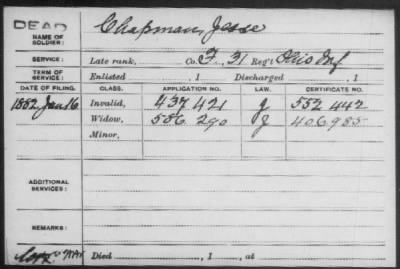 DEAD
NAME OF SOLDIER: Chapman, Jesse
SERVICE: Late rank, Co. F, 31 Reg't Ohio Inf
TERM OF SERVICE: Enlisted , 1 Discharged , 1
DATE OF FILING. CLASS. APPLICATION NO. LAW. CERTIFICATE NO.
1882 Jan 16 Invalid, 437 421 g 552 442
Widow, 506 290 g 406985
Minor,
ADDITIONAL SERVICES:
REMARKS:
Died , 1 , at